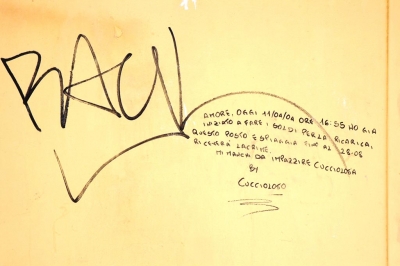 BACI
AMORE, OGGI 11/04/04 ORE 16:55 HO GIA
INIZIATO A FARE I SOLDI PER LA RICARICA,
QUESTO POSTO E SPIAGGIA FINE AL 28-08
RICEVERÀ LACRIME.
MI MANCHI DA IMPAZZIRE CUCCIOLOSA
BY
CUCCIOLOSO